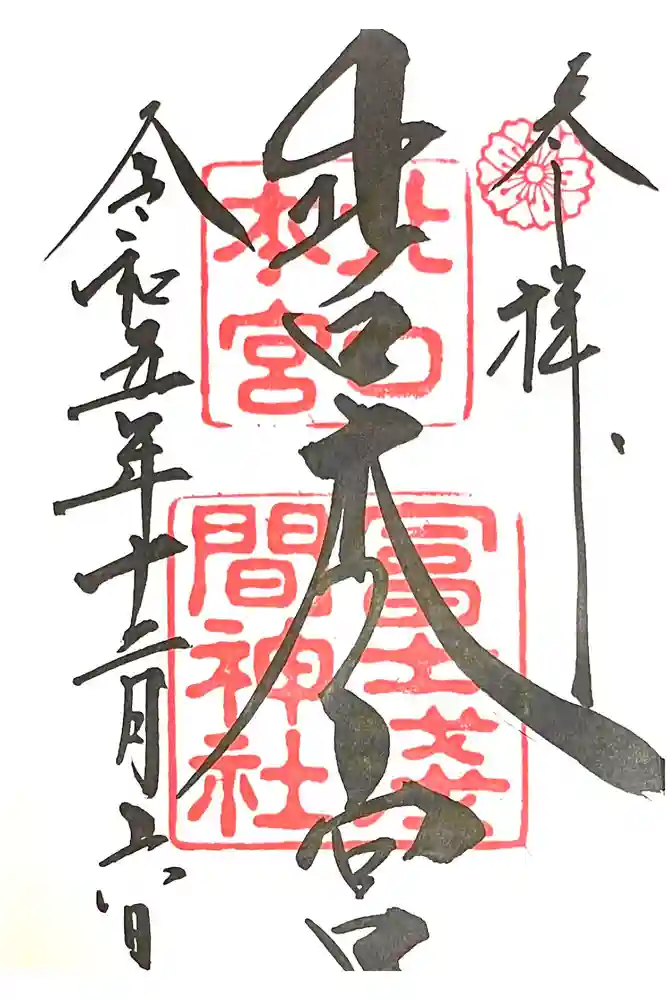 奉拝
北口本宮
北口
本宮
冨士浅
間神社
令和五年十二月六日